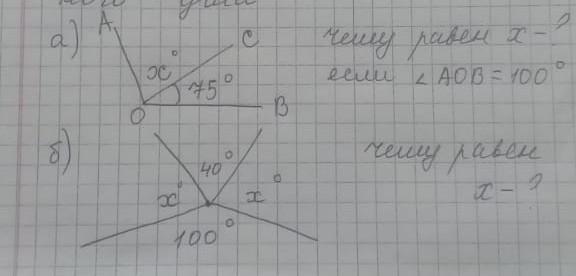 а) A C чему равен x - ?
x° 75° если ∠AOB = 100°
O B
б) 40° чему равен
x° x° x - ?
100°